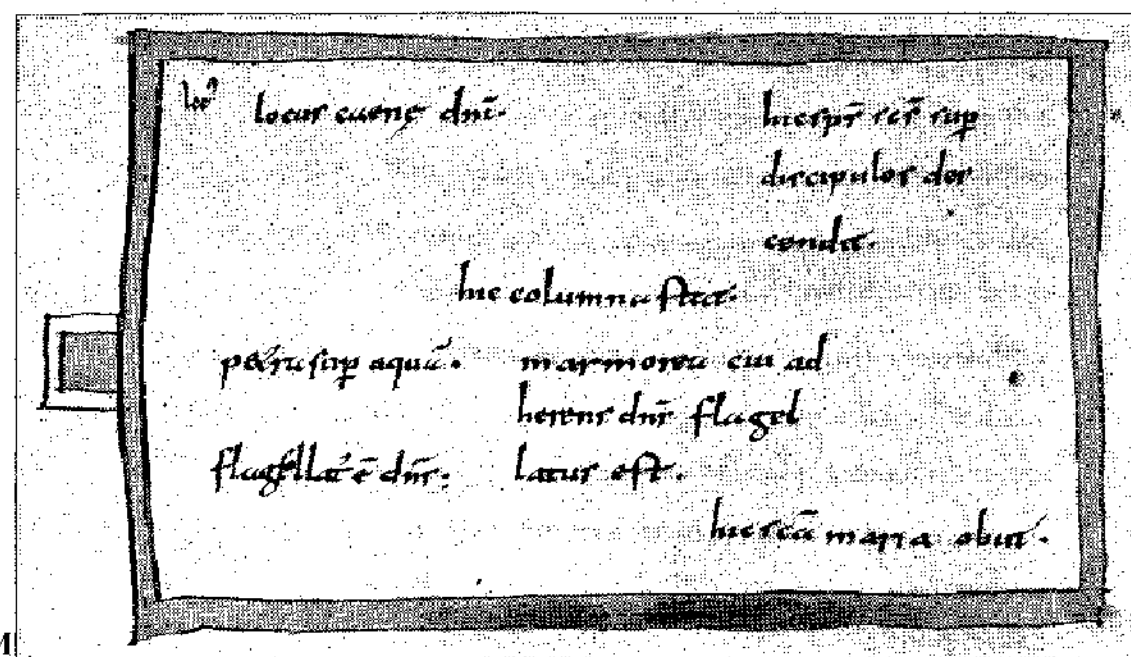 loc⁹ locus caenę dñi.
hic sp̄s sc̄s sup̄
discipulos des
cendit.
hic columna stat.
petra sup̄ aquā. marmorea cui ad
herens dñs flagel
flagellat᾽ ē dñs. latus est.
hic sc̄a maria obiit.